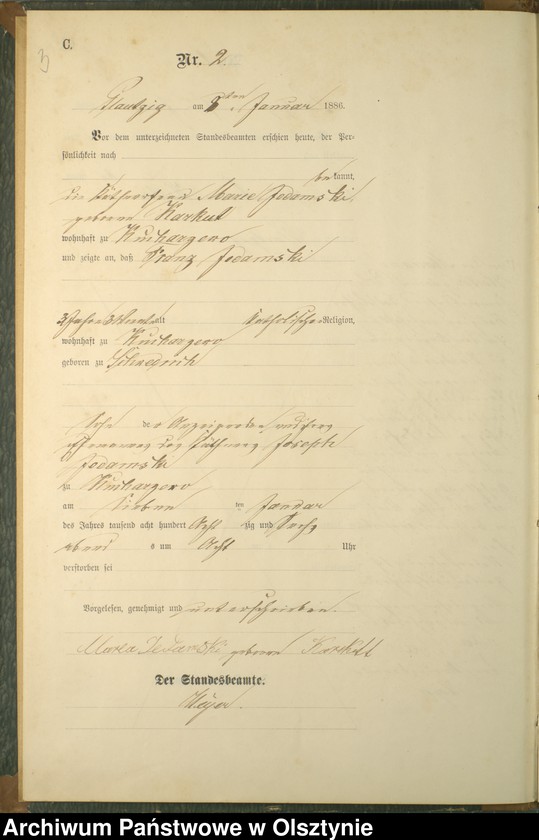 3
C.
Nr. 2.
am 8ten Januar 1886.
Vor dem unterzeichneten Standesbeamten erschien heute, der Per-
sönlichkeit nach
bekannt,
die Marie Jedamski
geborene Karkut
wohnhaft zu Kucharzewo
und zeigte an, daß Franz Jedamski
3 Jahre alt katholischer Religion,
wohnhaft zu Kucharzewo
geboren zu
Sohn der Anzeigenden und ihres
Ehemannes des Joseph
Jedamski
zu Kucharzewo
am sieben ten Januar
des Jahres tausend acht hundert acht zig und sechs
abend s um acht Uhr
verstorben sei
Vorgelesen, genehmigt und unterschrieben.
geborene
Der Standesbeamte.
Archiwum Państwowe w Olsztynie